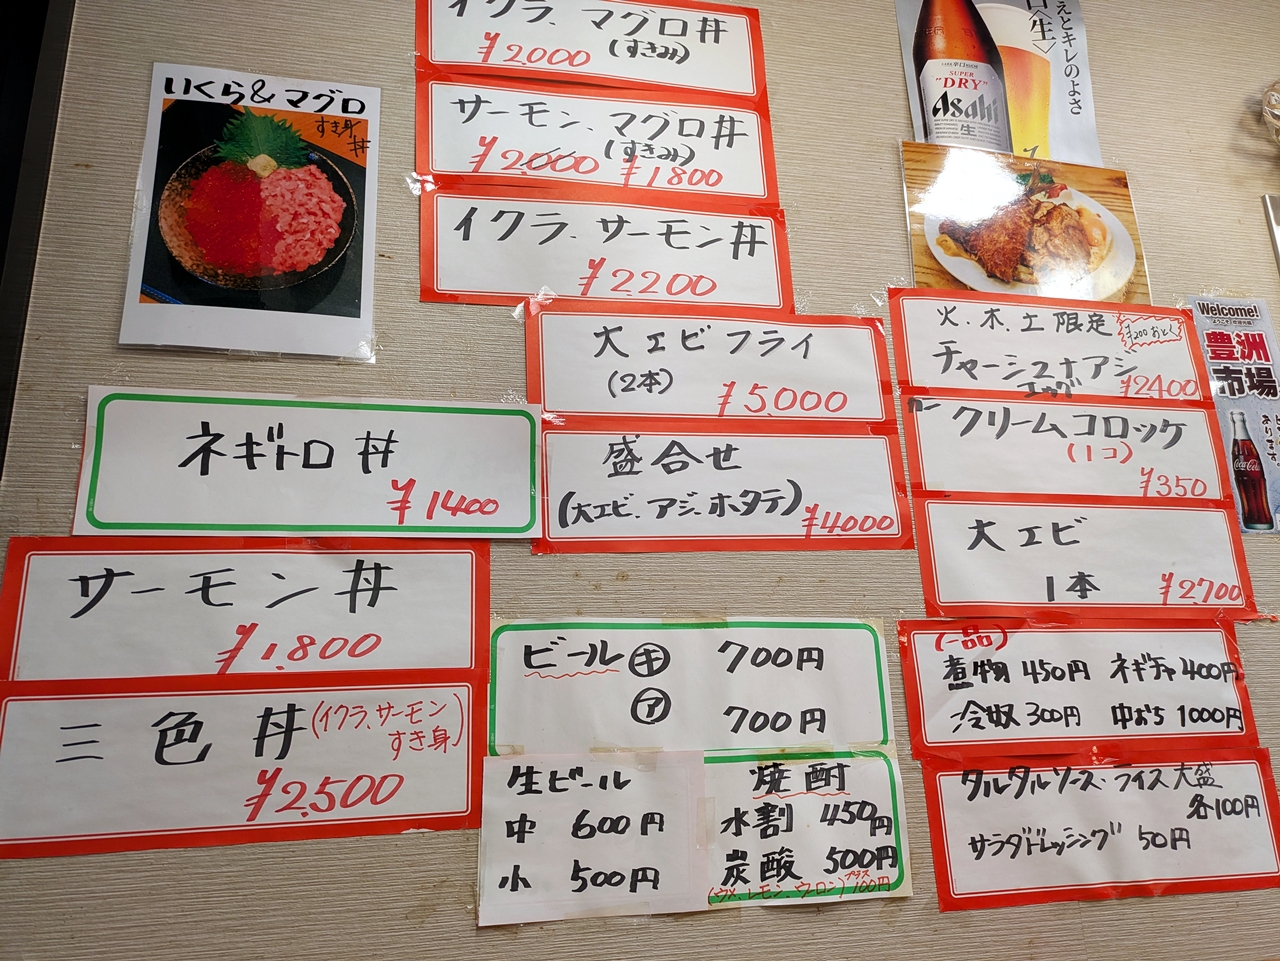 いくら&マグロ
すき身
丼
イクラ、マグロ丼
(すきみ)
¥2000
サーモン、マグロ丼
(すきみ)
¥2000 ¥1800
イクラ、サーモン丼
¥2200
ネギトロ丼
¥1400
サーモン丼
¥1,800
三色丼(イクラ、サーモン
すき身)
¥2,500
大エビフライ
(2本)
¥5,000
盛合せ
(大エビ、アジ、ホタテ)
¥4000
ビール キ 700円
ア 700円
生ビール
中 600円
小 500円
焼酎
水割 450円
炭酸 500円
(ウメ、レモン、ウーロン)プラス100円
えとキレのよさ
〈生〉
SUPER
"DRY"
Asahi
生
火、木、土限定
¥200おとく
チャーシューアジ
エッグ
¥2400
クリームコロッケ
(1コ)
¥350
大エビ
1本 ¥2,700
(一品)
煮物 450円 ネギチャ 400円
冷奴 300円 中おち 1000円
タルタルソース・ライス大盛
各100円
サラダドレッシング 50円
Welcome!
ようこそ
豊洲
市場
Coca-Cola
あります。